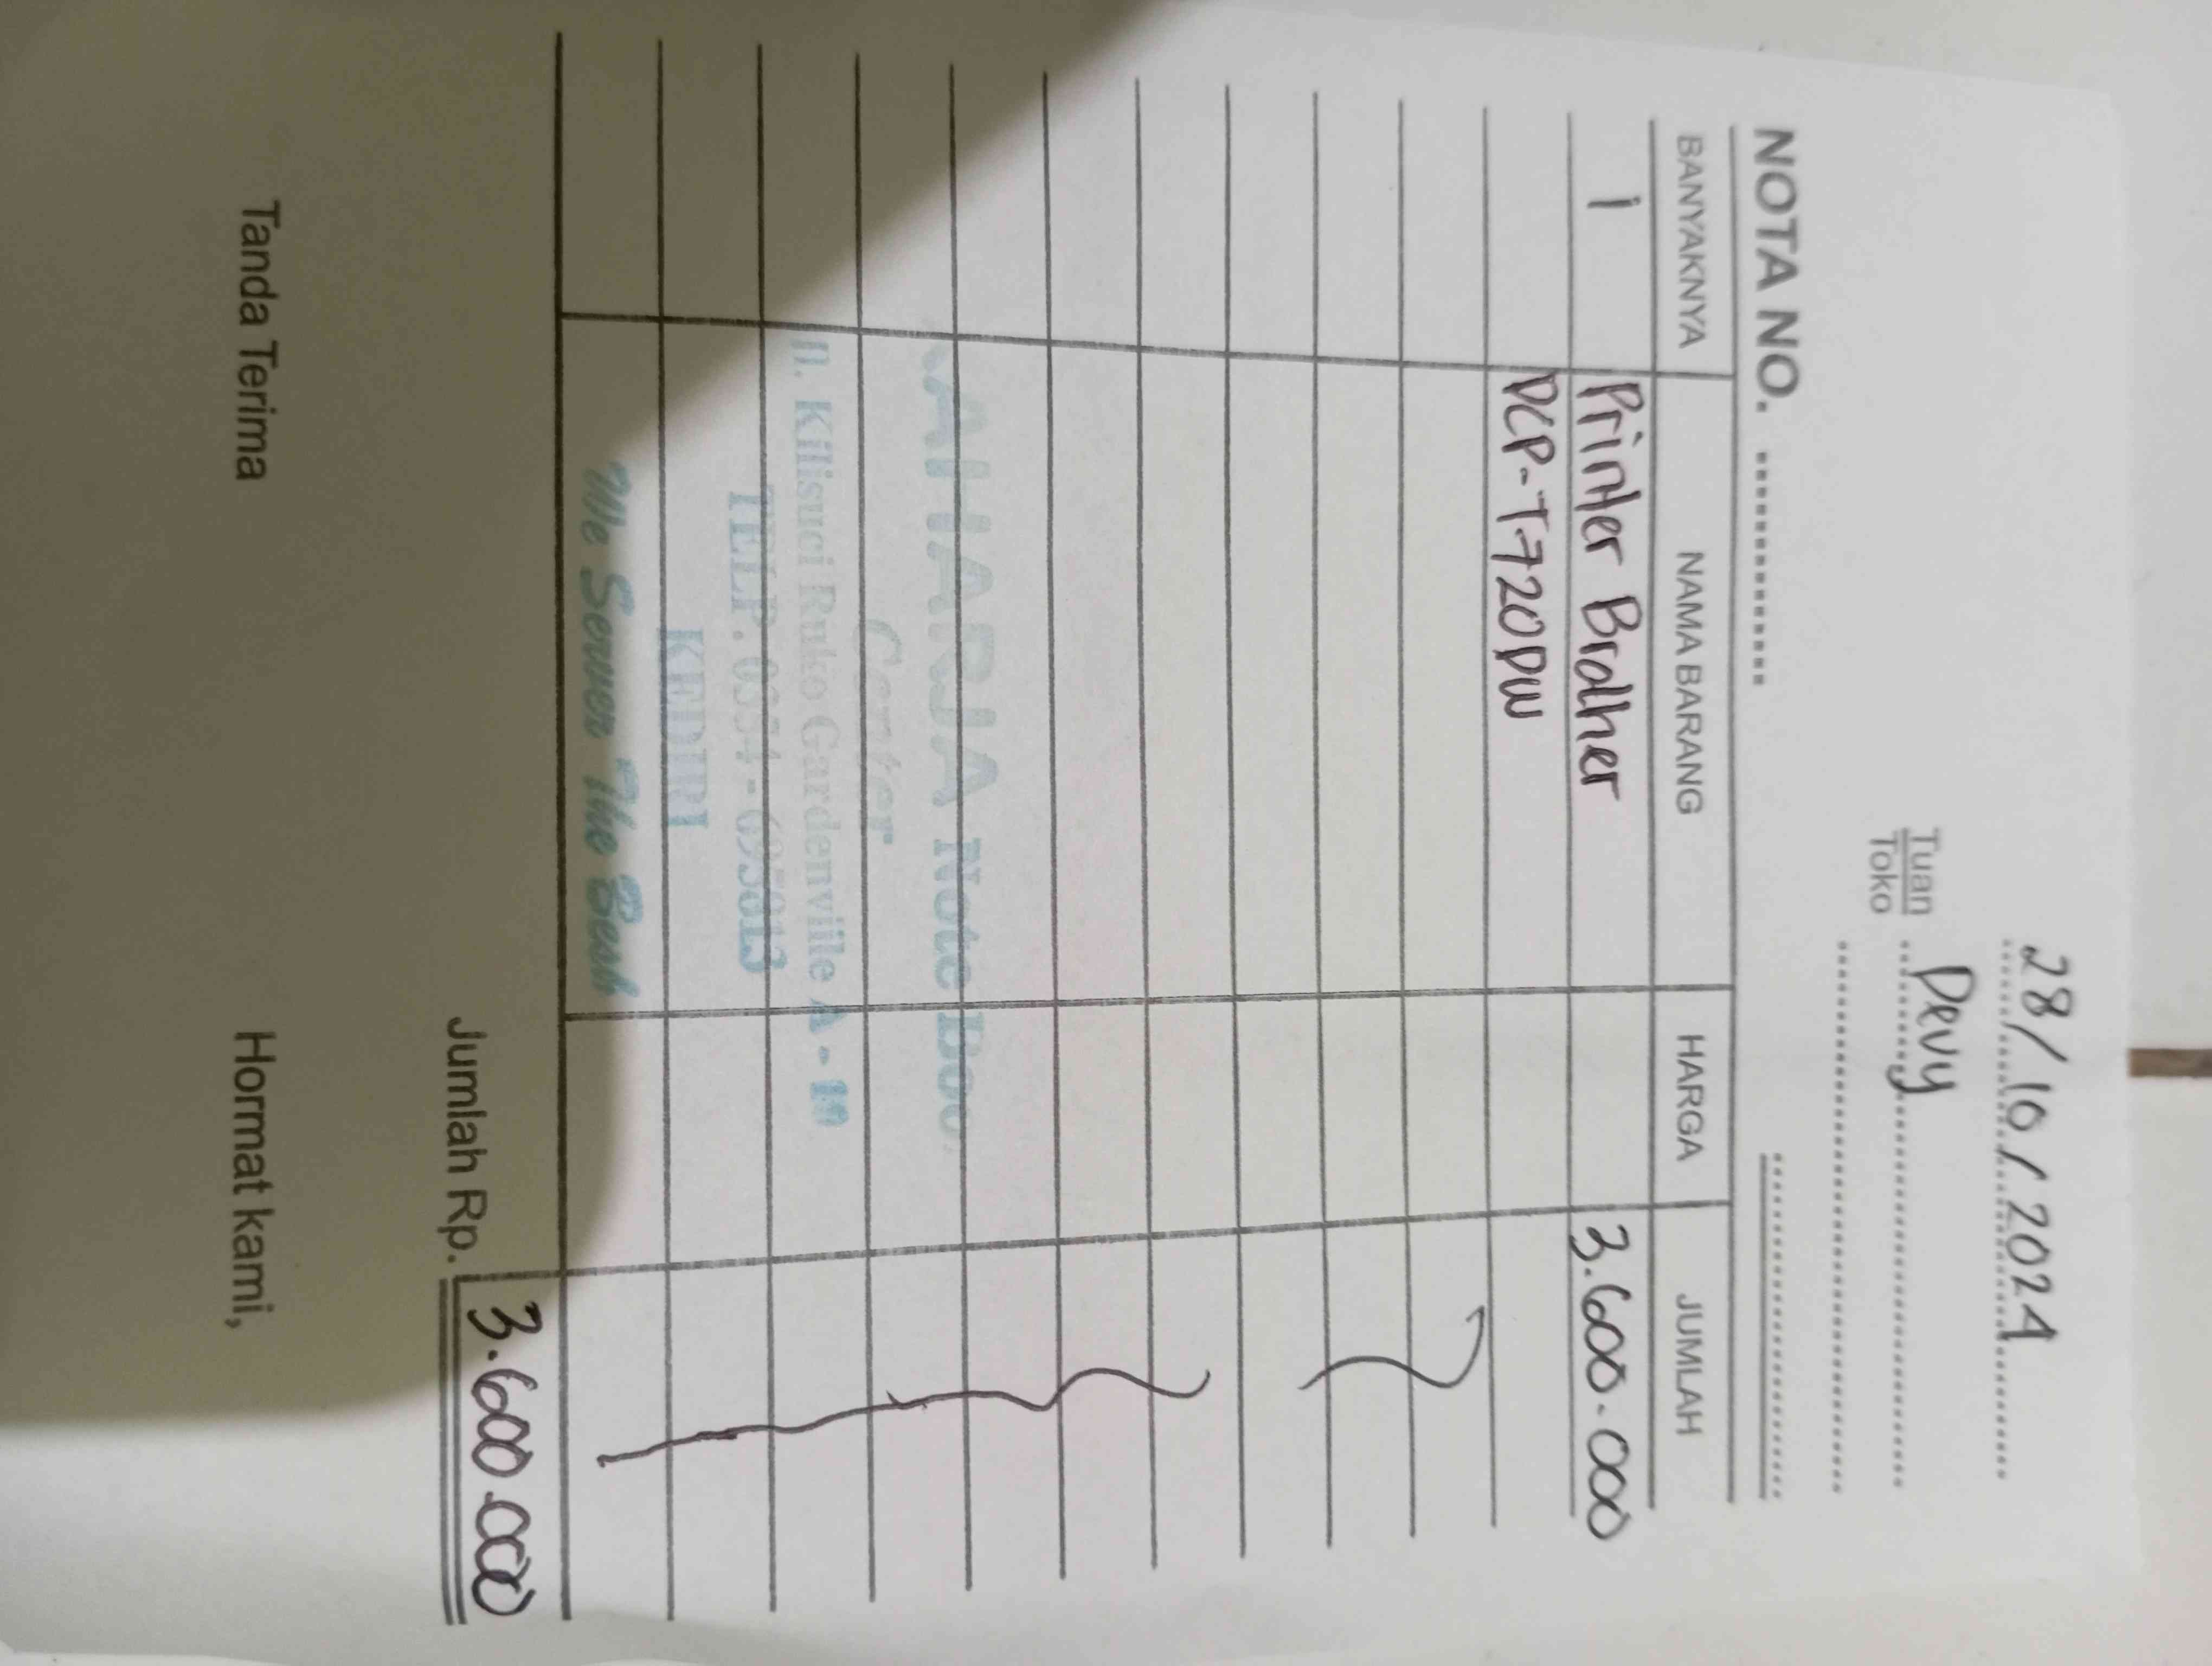 28/10/2024
Tuan Devy
Toko
NOTA NO.
BANYAKNYA NAMA BARANG HARGA JUMLAH
1 Printer Brother 3.600.000
DCP-T720DW
Note
Center
Kilisuci Ruko Gardenville A - 10
TELP. 0354 -
KEDIRI
We Server The Best
Jumlah Rp. 3.600.000
Tanda Terima Hormat kami,